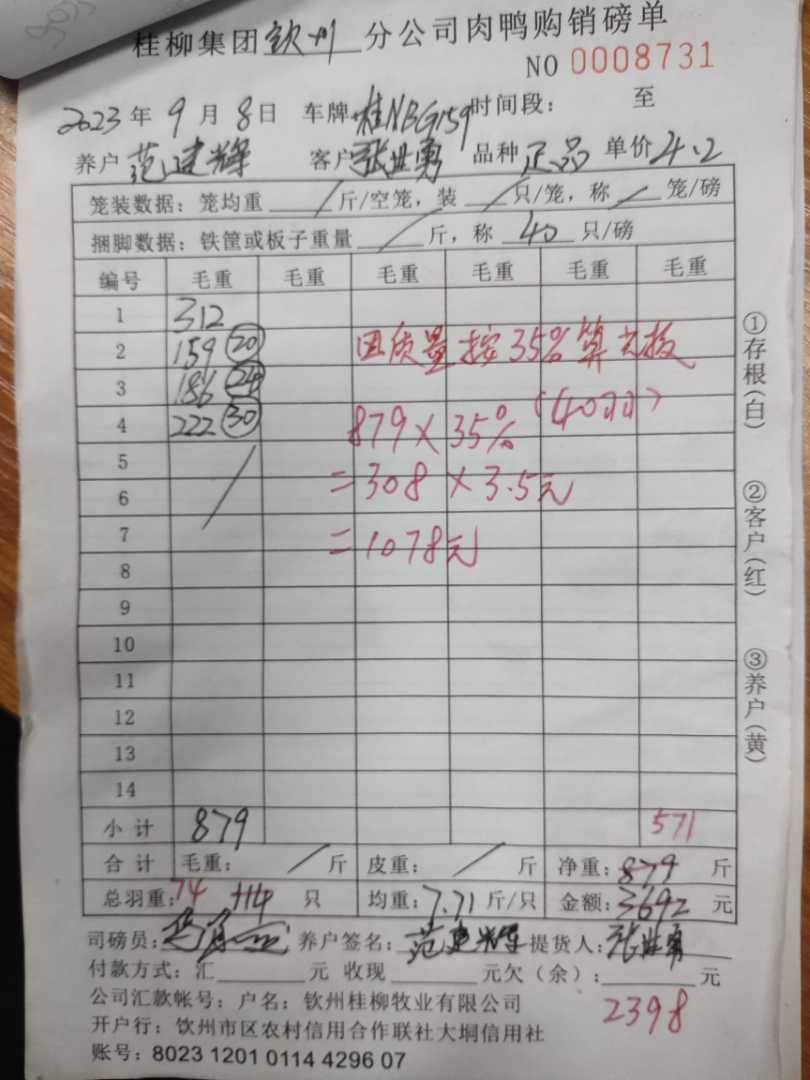 桂柳集团钦州分公司肉鸭购销磅单
NO 0008731
2023年9月8日 车牌桂NBG159时间段: 至
养户范建辉 客户张世勇 品种正品 单价4.2
笼装数据: 笼均重/斤/空笼, 装/只/笼, 称/笼/磅
捆脚数据: 铁筐或板子重量/斤, 称40只/磅
编号 毛重 毛重 毛重 毛重 毛重 毛重
1 312
2 159 20 因质量按35%算
3 186 24
4 222 30 879×35%(40羽)
5 /
6 =308×3.5元
7 =1078元
8
9
10
11
12
13
14
小计 879 571
合计 毛重: / 斤 皮重: / 斤 净重: 879 斤
总羽重: 74 114 只 均重: 7.71 斤/只 金额: 3692 元
司磅员: 养户签名: 范建辉 提货人: 张世勇
付款方式: 汇 元 收现 元欠(余): 元
公司汇款帐号: 户名: 钦州桂柳牧业有限公司
2398
开户行: 钦州市区农村信用合作联社大垌信用社
账号: 8023 1201 0114 4296 07
①存根(白)
②客户(红)
③养户(黄)